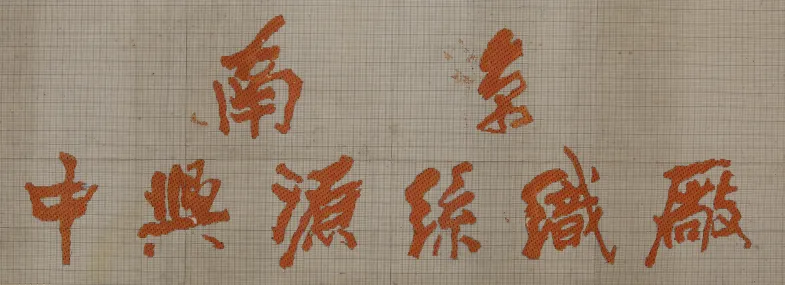 南京
中興源絲織廠